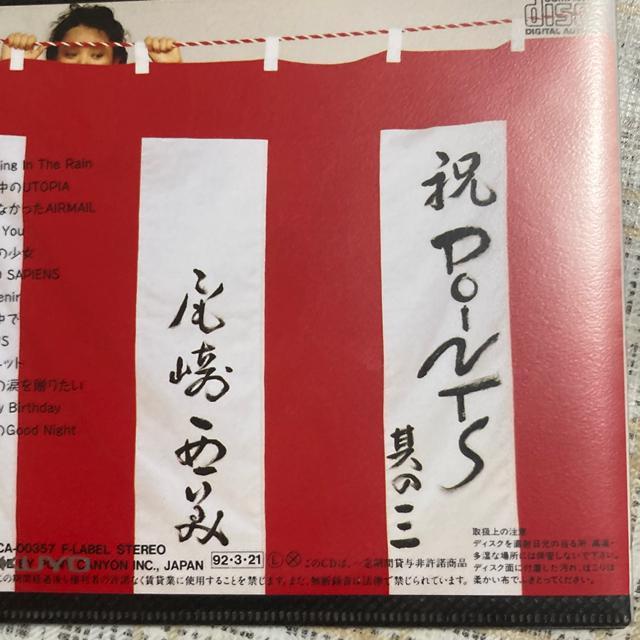 COMPACT
disc
DIGITAL AUDIO
ing In The Rain
中のUTOPIA
なかったAIRMAIL
You
の少女
SAPIENS
enin
中で
US
ネット
の涙を贈りたい
y Birthday
のGood Night
祝 POiNTS
其の三
尾崎亜美
取扱上の注意
ディスクを直射日光の当る所、高温・
多湿な場所には保管しないで下さい。
ディスク面に付着した汚れ、ほこりは
柔かい布でふきとってください。
CA-00357 F-LABEL STEREO
NYON INC., JAPAN 92・3・21 L このCDは、一定期間貸与非許諾商品
の期間経過後も権利者の許諾なく賃貸業に使用することを禁じます。また、無断録音は法律で禁じられています。